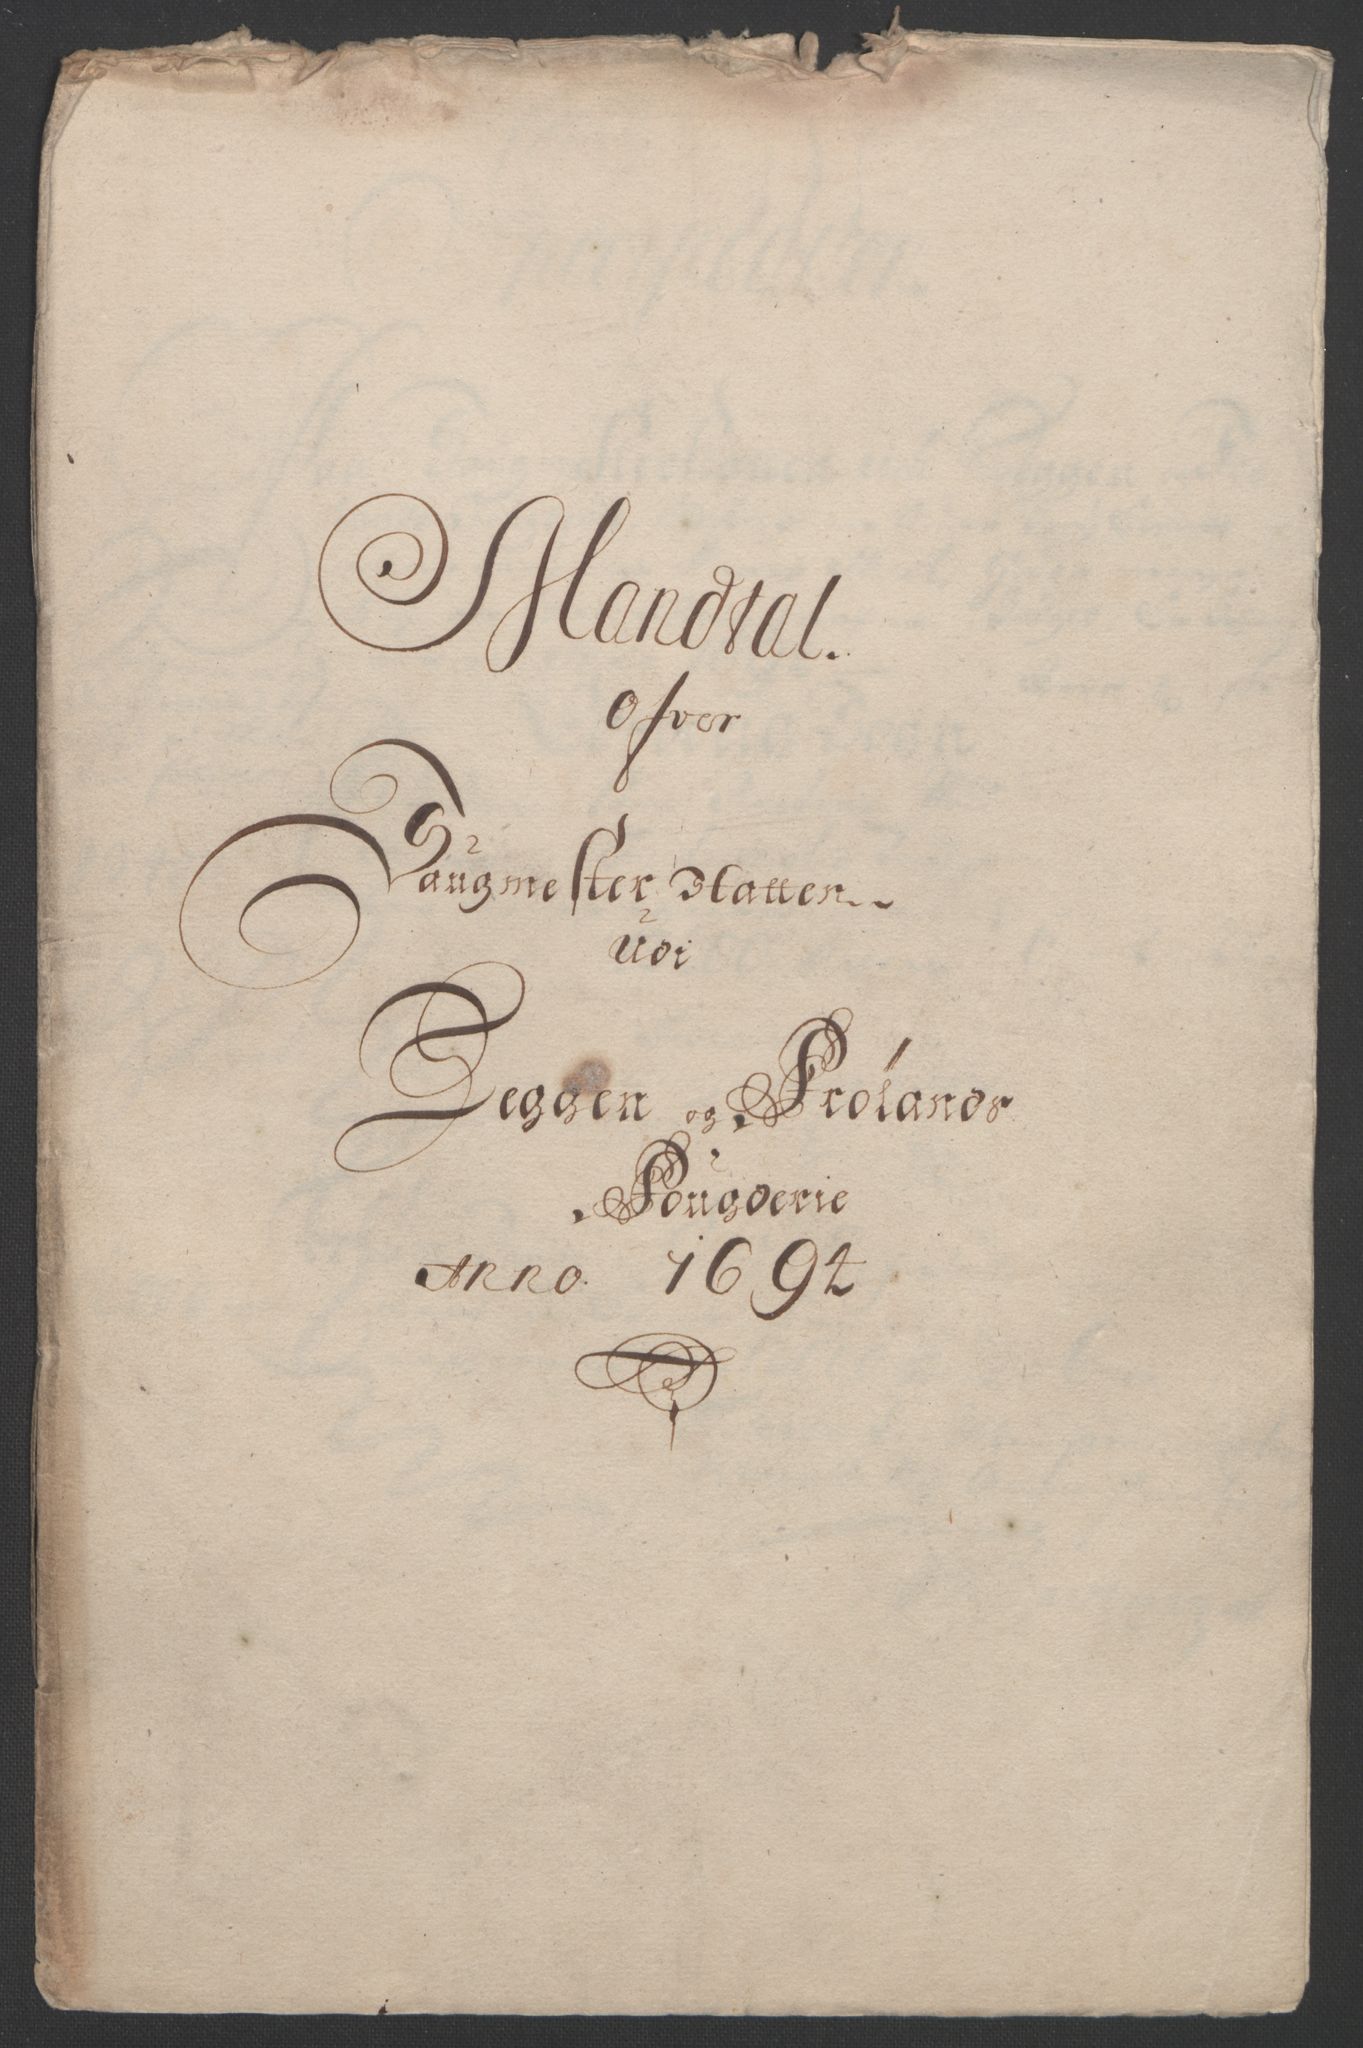 Mandtal.
ofver
Saugmester Skatten..
Udi
Heggen og Frölands
Fougderie
Anno. 1694